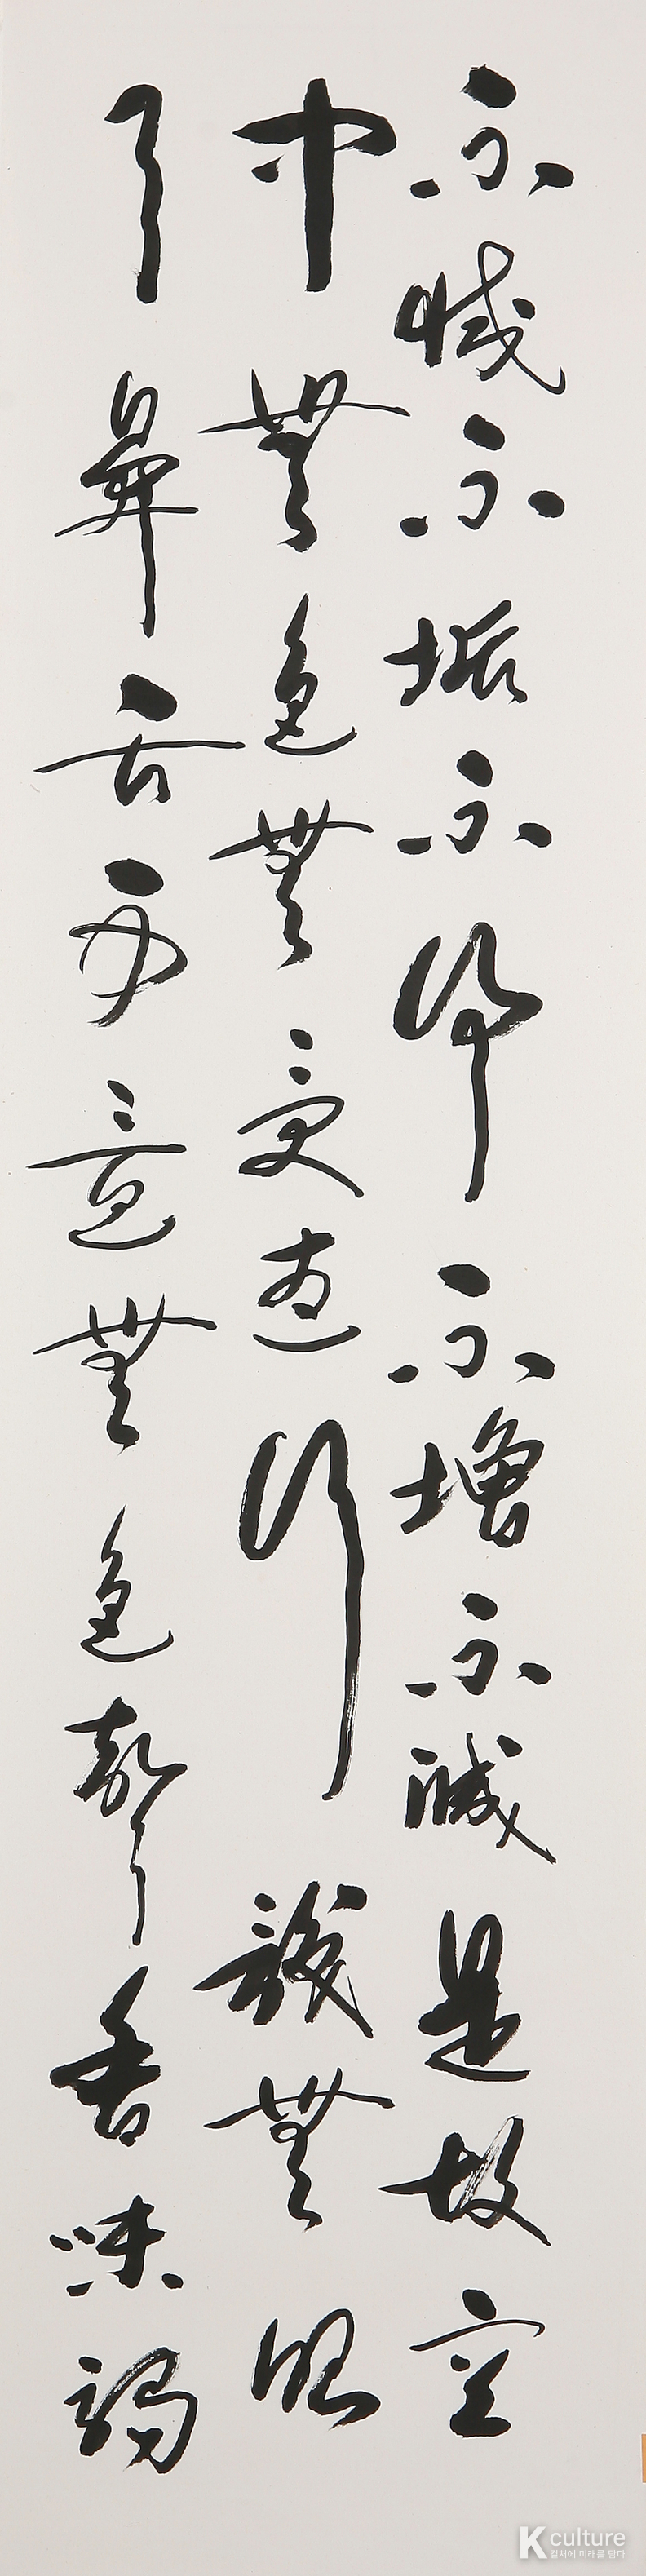 不滅不垢不淨不增不減是故空
中無色無受想行識無眼
耳鼻舌身意無色聲香味觸
K culture
컬처에 미래를 담다